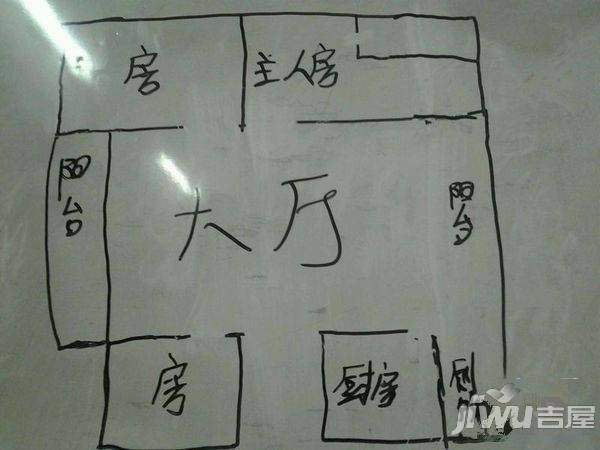 房
主人房
阳台
大厅
阳台
房
厨房
厕
jiwu吉屋